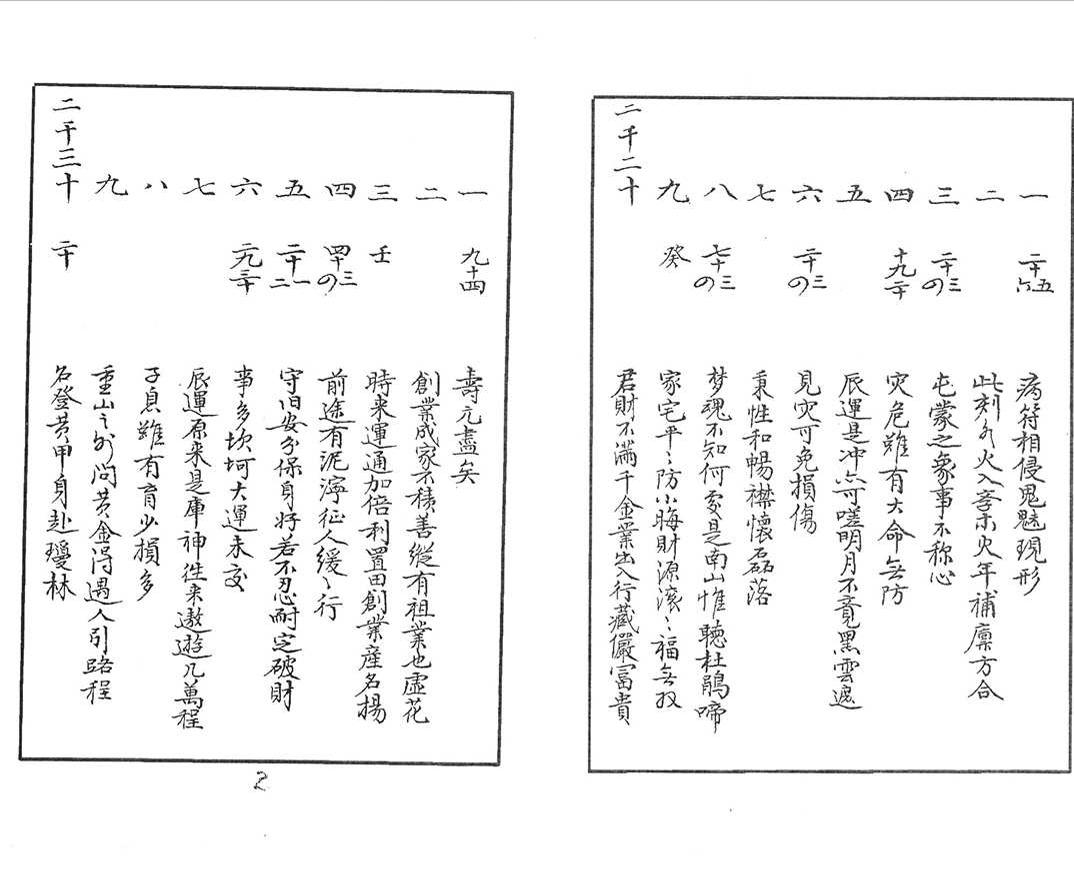 一 二十五六 病符相侵鬼魅現形
二 此刻水火入泮木火年補廩方合
三 二十三の 屯蒙之象事不称心
四 十九二十 灾危雖有大命無防
五 辰運是冲亦可嗟明月不竟黑雲遮
六 二十三の 見灾可免損傷
七 秉性和暢襟懷磊落
八 七十三の 梦魂不知何處是南山惟聴杜鵑啼
九 癸 家宅平〻防小晦財源滾〻福無双
二千二十 君財不滿千金業出入行藏儼冨貴
一 九十四 壽元盡矣
二 創業成家不積善縱有祖業也虚花
三 壬 時来運通加倍利置田創業産名揚
四 四十三の 前途有泥濘征人緩〻行
五 二十一二 守旧安分保身好若不忍耐定破財
六 二九三十 事多坎坷大運未交
七 辰運原来是庫神徃来遨遊几萬程
八 子息雖有育少損多
九 重山之外问黄金得遇人引路程
二千三十 二十 名登黄甲身赴瓊林
2